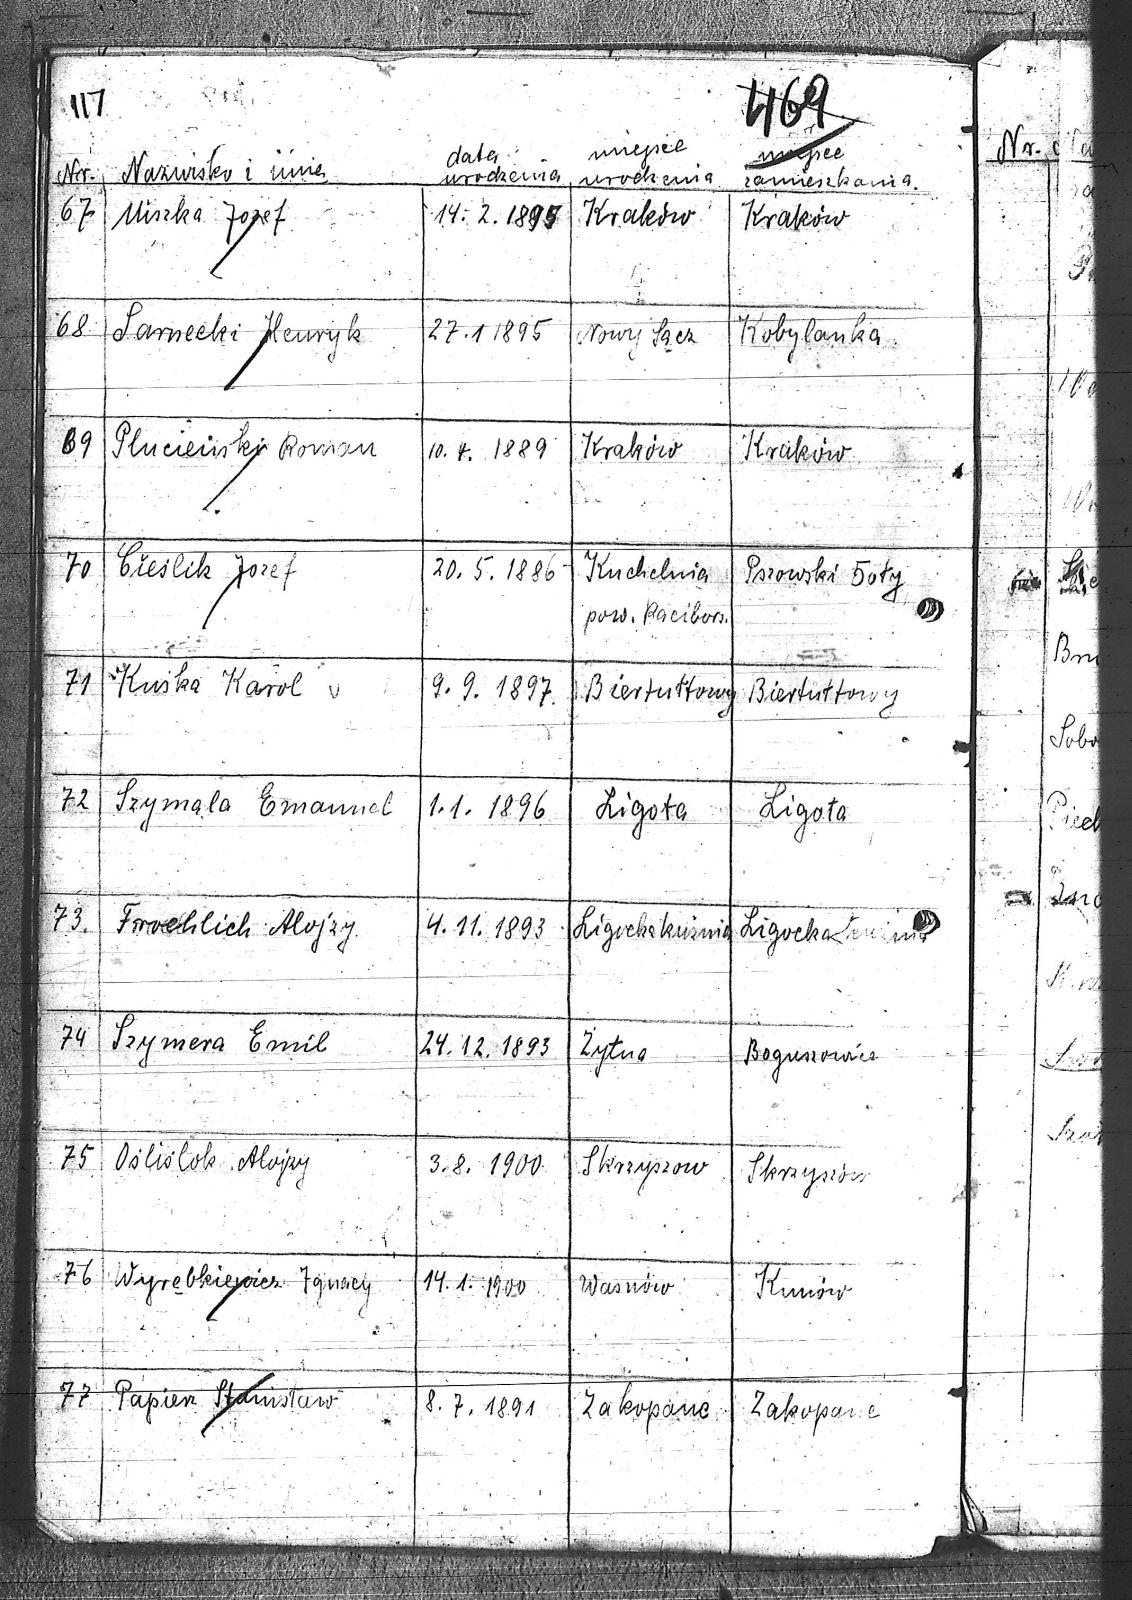 117
469
Nr. Nazwisko i imię data urodzenia miejsce urodzenia miejsce zamieszkania.
67 Miszka Jozef 14. 2. 1895 Kraków Kraków
68 Sarnecki Henryk 27. 1 1895 Nowy Sącz Kobylanka
69 Plucieński Roman 10. 4. 1889 Kraków Kraków
70 Cieślik Jozef 20. 5. 1886 Kuchelnia Pszowski Doły
pow. Racibors.
71 Kuśka Karol v 9. 9. 1897. Biertułtowy Biertułtowy
72 Szymala Emanuel 1. 1. 1896 Ligota Ligota
73. Froehlich Alojzy 4. 11. 1893 Ligocka kuźnia Ligocka
74 Szymera Emil 24. 12. 1893 Żytna Boguszowice
75 Ośliślok Alojzy 3. 8. 1900 Skrzyszow Skrzyszów
76 Wyrębkiewicz Ignacy 14. 1. 1900 Wasniów Kunów
77 Papież Stanisław 8. 7. 1891 Zakopane Zakopane
Nr.